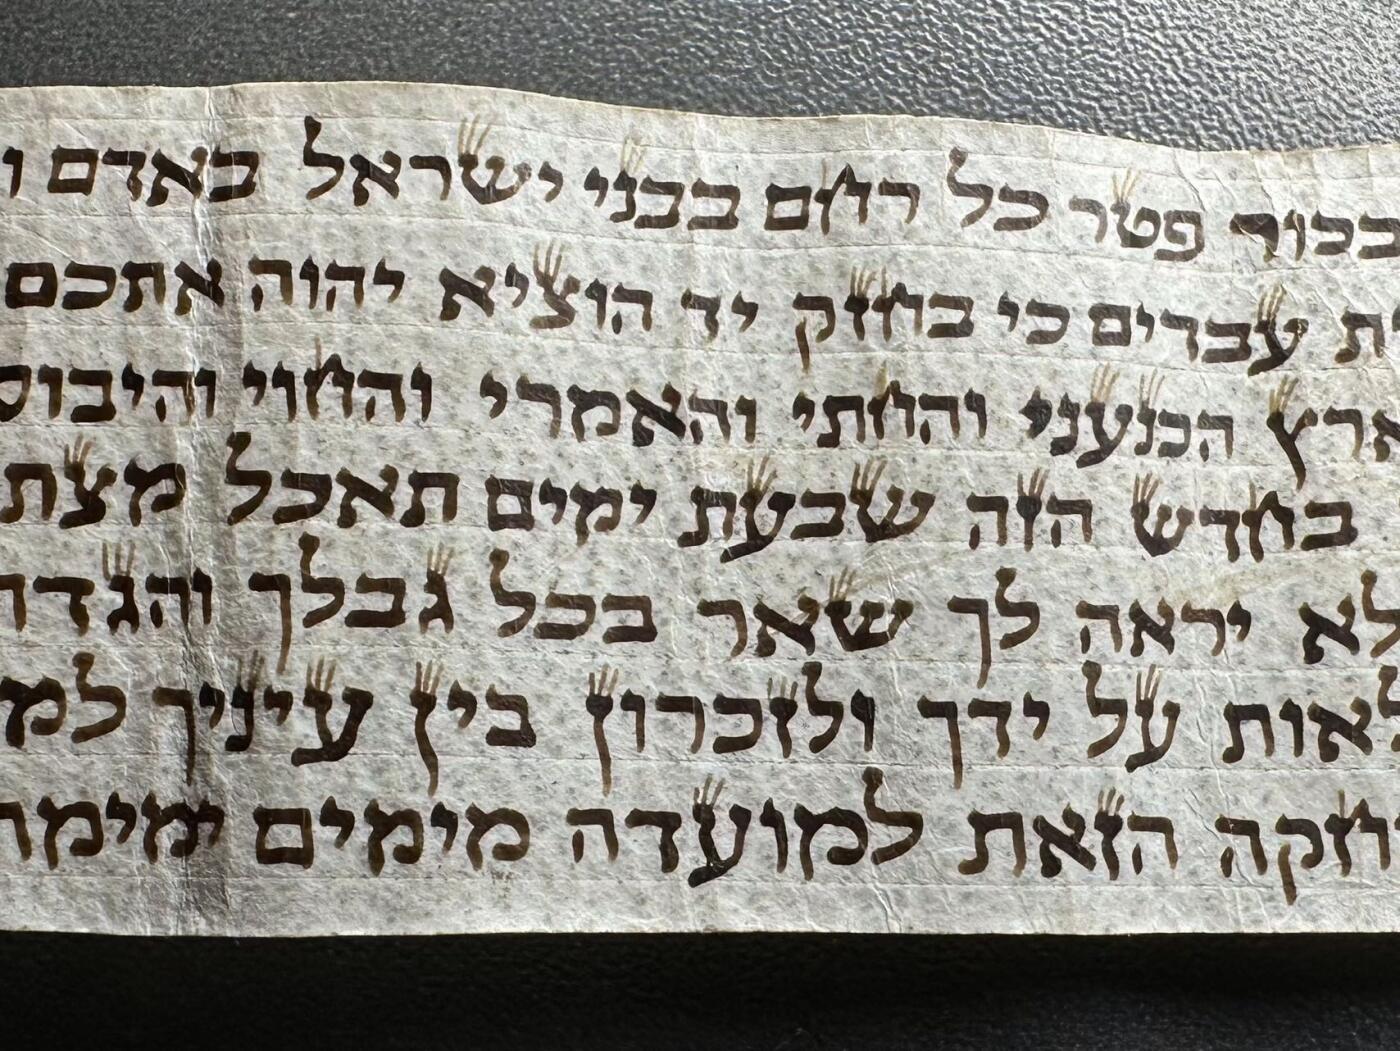 בכור פטר כל רחם בבני ישראל באדם
עבדים כי בחזק יד הוציא יהוה אתכם
ארץ הכנעני והחתי והאמרי והחוי
בחדש הזה שבעת ימים תאכל מצת
לא יראה לך שאר בכל גבלך
לאות על ידך ולזכרון בין עיניך
חקה הזאת למועדה מימים